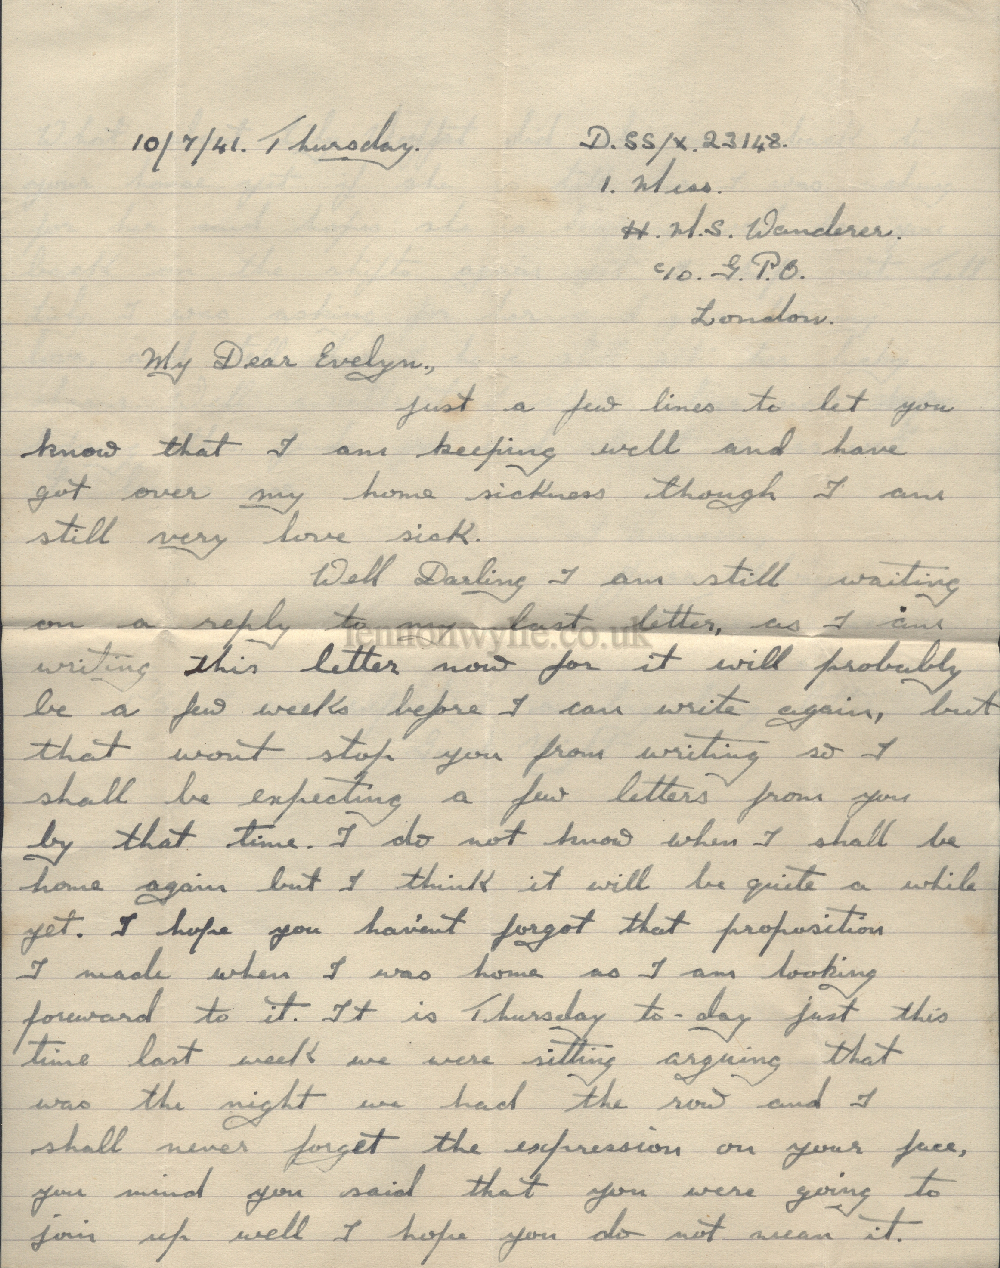 10/7/41. Thursday.
D.SS/X.23148.
1. Mess.
H.M.S. Wanderer.
c/o. G.P.O.
London.
My Dear Evelyn.,
just a few lines to let you
know that I am keeping well and have
got over my home sickness though I am
still very love sick.
Well Darling I am still waiting
on a reply to my last letter, as I am
lennonwylie.co.uk
writing this letter now for it will probably
be a few weeks before I can write again, but
that won't stop you from writing so I
shall be expecting a few letters from you
by that time. I do not know when I shall be
home again but I think it will be quite a while
yet. I hope you haven't forgot that proposition
I made when I was home as I am looking
foreward to it. It is Thursday to-day just this
time last week we were sitting arguing that
was the night we had the row and I
shall never forget the expression on your face,
you mind you said that you were going to
join up well I hope you do not mean it.